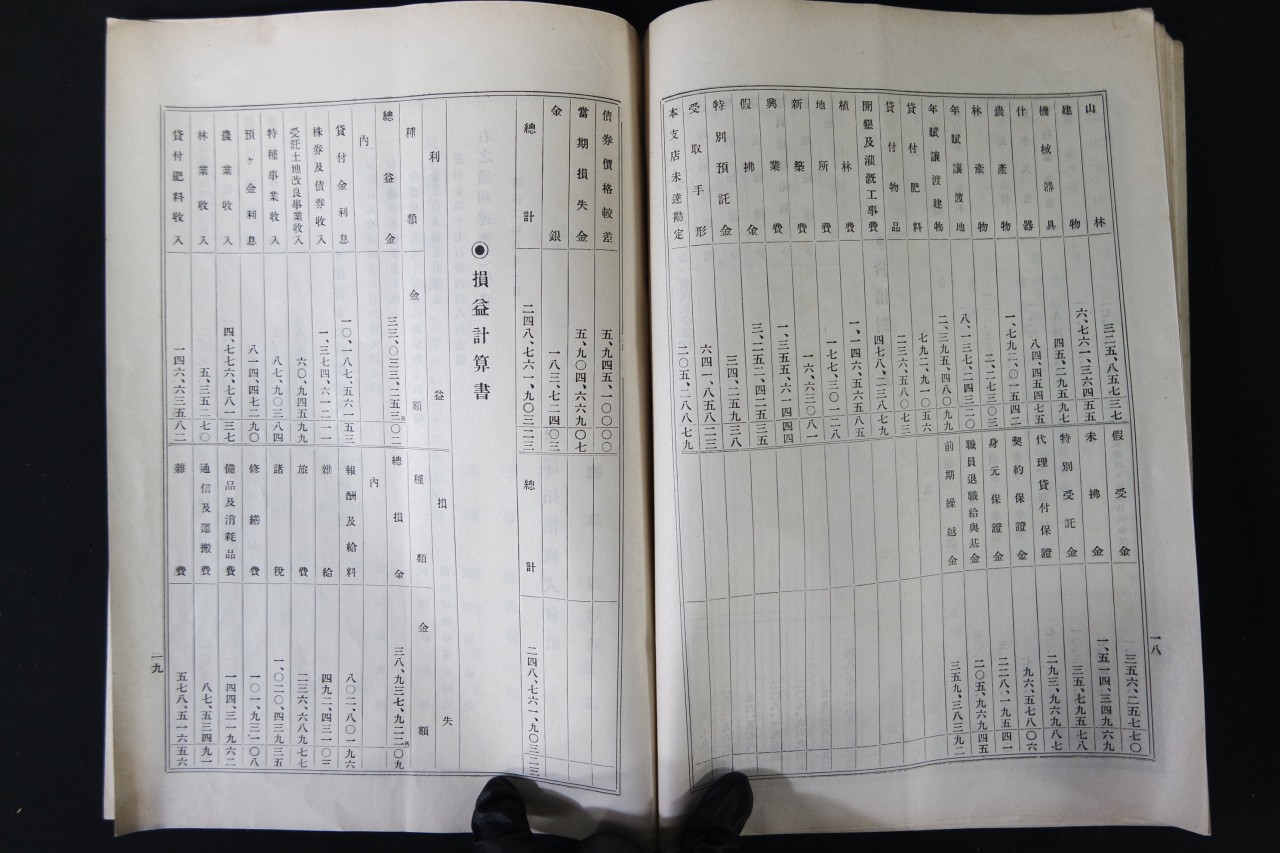 一八
山林 三二五、八五七三七
建物 六、七六一、三六四五五
機械器具 四五、二九五九七
什器 八四、四五四七五
農產物 一、七九二、〇一五四二
林產物 二、二七三〇三
年賦讓渡地 八、一三七、二四三二〇
年賦讓渡建物 二、三九五、四八〇九九
貸付肥料 七九二、九一〇五六
貸付物品 二三六、五八〇七三
開墾及灌漑工事費 四七八、二三八七九
植林費 一、一四六、五六五八五
地所費 一七七、三〇一二八
新築費 一六、六三〇八一
興業費 一、三五五、六一四四四
假拂金 三、二五二、四二五三五
特別預託金 三四、二五九三八
受取手形 六四一、八五八二三
本支店未達勘定 二〇五、二八八七九
假受金 三五六、二五七七〇
未拂金 一、五一四、三四九六九
特別受託金 三五、七九五七八
代理貸付保證 二九三、九六九八七
契約保證金 九六、五七八〇六
身元保證金 二二八、一九五四一
職員退職給與基金 二〇五、九六九四五
前期繰越金 三五九、三八三九二
債券價格較差 五、九四五、一〇〇〇〇
當期損失金 五、九〇四、六六九〇七
金銀 一八三、七二四〇三
總計 二四八、七六一、九〇三二三
總計 二四八、七六一、九〇三二三
◉損益計算書
利益
種類 金額
總益金 三三、〇三三、二五三円〇二
內
貸付金利息 一〇、一八七、五六一五三
株券及債券收入 一、三七四、六一二一一
受託土地改良事業收入 六〇、九四五九九
特種事業收入 八七、九〇三八四
預ケ金利息 八一四、四七二九〇
農業收入 四、七七六、七八一三七
林業收入 五、三五二七〇
貸付肥料收入 一四六、六三五八二
損失
種類 金額
總損金 三八、九三七、九二二円〇九
內
報酬及給料 八〇二、八〇一九六
雜給 四九二、四三一〇三
旅費 二三六、六八九七七
諸稅 一、〇二〇、四三九三五
修繕費 一〇一、九三一〇八
備品及消耗品費 一四四、三一九六二
通信及運搬費 八七、五三四九一
雜費 五七八、五一六五六
一九